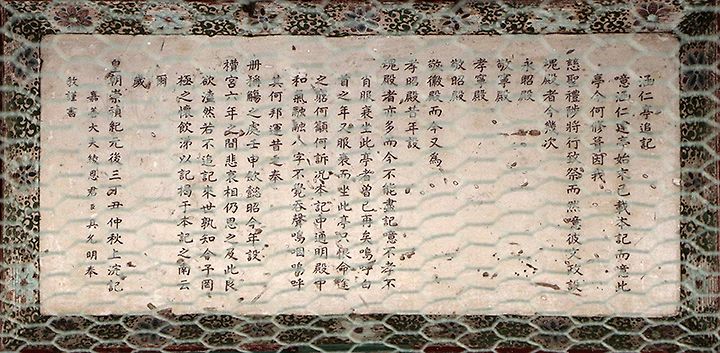 涵仁亭追記
噫涵仁建亭始末已載本記而噫此
亭今何修葺因我
慈聖禮陟將行致祭而然噫彼文政設
魂殿者今幾次
永昭殿
敬寧殿
孝寧殿
敬昭殿
敬徽殿而今又爲
孝昭殿昔年設
魂殿者亦多而今不能盡記噫不孝不
肖服衰坐此亭者曾已再矣嗚呼白
首之年又服衰而坐此亭只恨命途
之窮何顧何訴况本記中通明殿中
和氣融融八字不覺吞聲嗚咽嗚呼
其何邦運昔之泰
册稱觴之處壬申歟懿昭今年設
欑宮六年之間悲哀相仍思之及此良
欲溘然若不追記來世孰知今予罔
極之懷飲涕以記揭于本記之南云
爾
歲
皇朝崇禎紀元後三丁丑仲秋上浣記
嘉善大夫綾恩君臣具允明奉
敎謹書